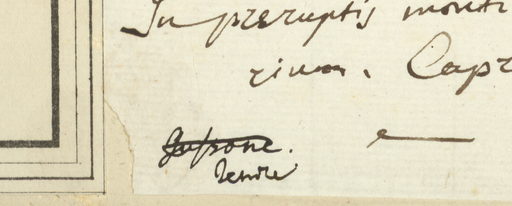 In preruptis monti
rium. Capr
Gussone.
Tenore